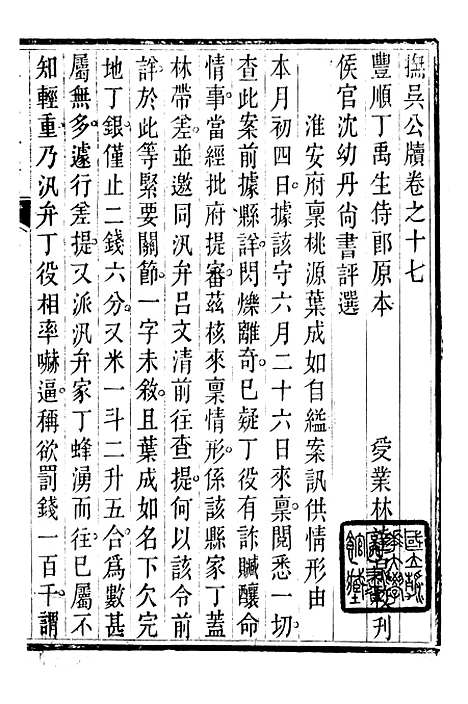 撫吳公牘卷之十七
豐順丁禹生侍郎原本 受業林
刊
侯官沈幼丹尚書評選
淮安府稟桃源葉成如自縊案訊供情形由
本月初四日據該守六月二十六日來稟閱悉一切
查此案前據縣詳閃爍離奇已疑丁役有詐贓釀命
情事當經批府提審茲核來稟情形係該縣家丁蓋
林帶差並邀同汛弁呂文清前往查提何以該令前
詳於此等緊要關節一字未敘且葉成如名下欠完
地丁銀僅止二錢六分又米一斗二升五合爲數甚
屬無多遽行差提又派汛弁家丁蜂湧而往已屬不
知輕重乃汛弁丁役相率嚇逼稱欲罰錢一百千謂